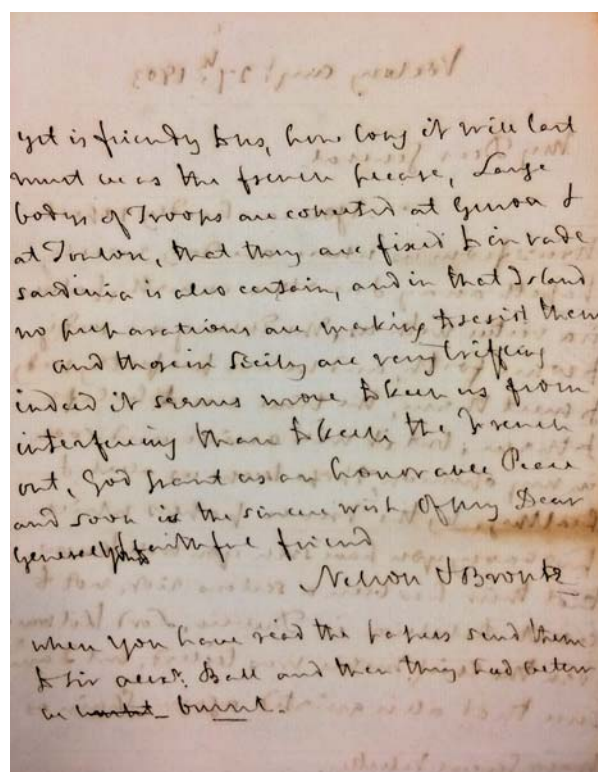 yet is friendy to us, how long it will last
must be as the french please, Large
bodys of Troops are collected at Genoa &
at Toulon, that they are fixed to invade
sardinia is also certain, and in that Island
no preparations are making to resist them
and those in Sicily are very trifling
indeed it seems more to keep us from
interfering than to keep the French
out, God grant us an honorable Peace
and soon is the sincere wish of my Dear
General faithful friend
Nelson & Bronte
when you have read the papers send them
to Sir alexr. Ball and then they had better
be burnt.